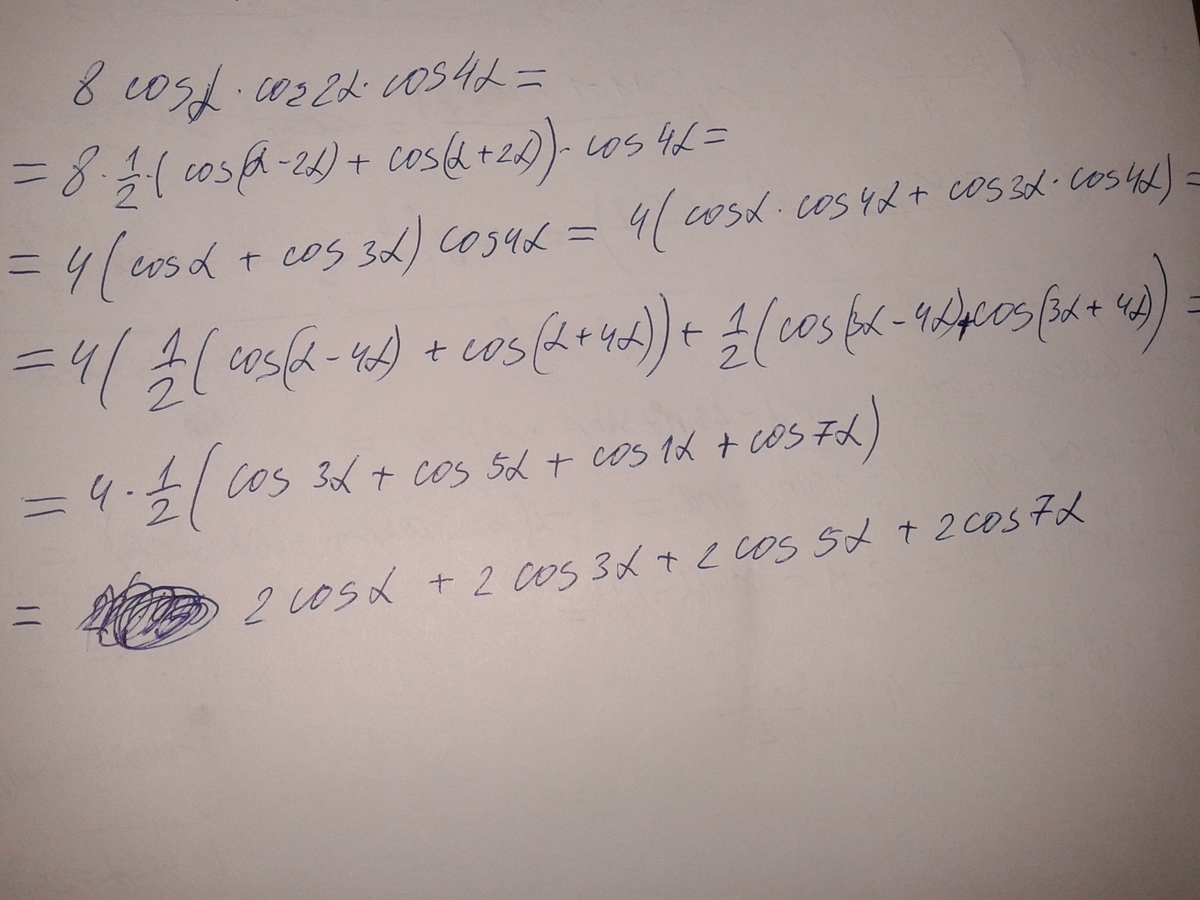 8 cosα · cos2α · cos4α =
= 8 · 1/2 · ( cos(α - 2α) + cos(α + 2α)) · cos 4α =
= 4 ( cosα + cos 3α) cos4α = 4 ( cosα · cos4α + cos3α · cos4α) =
= 4 ( 1/2 ( cos(α - 4α) + cos(α + 4α)) + 1/2 ( cos(3α - 4α) + cos(3α + 4α)) =
= 4 · 1/2 ( cos 3α + cos 5α + cos 1α + cos 7α)
= 2 cosα + 2 cos 3α + 2 cos 5α + 2 cos 7α